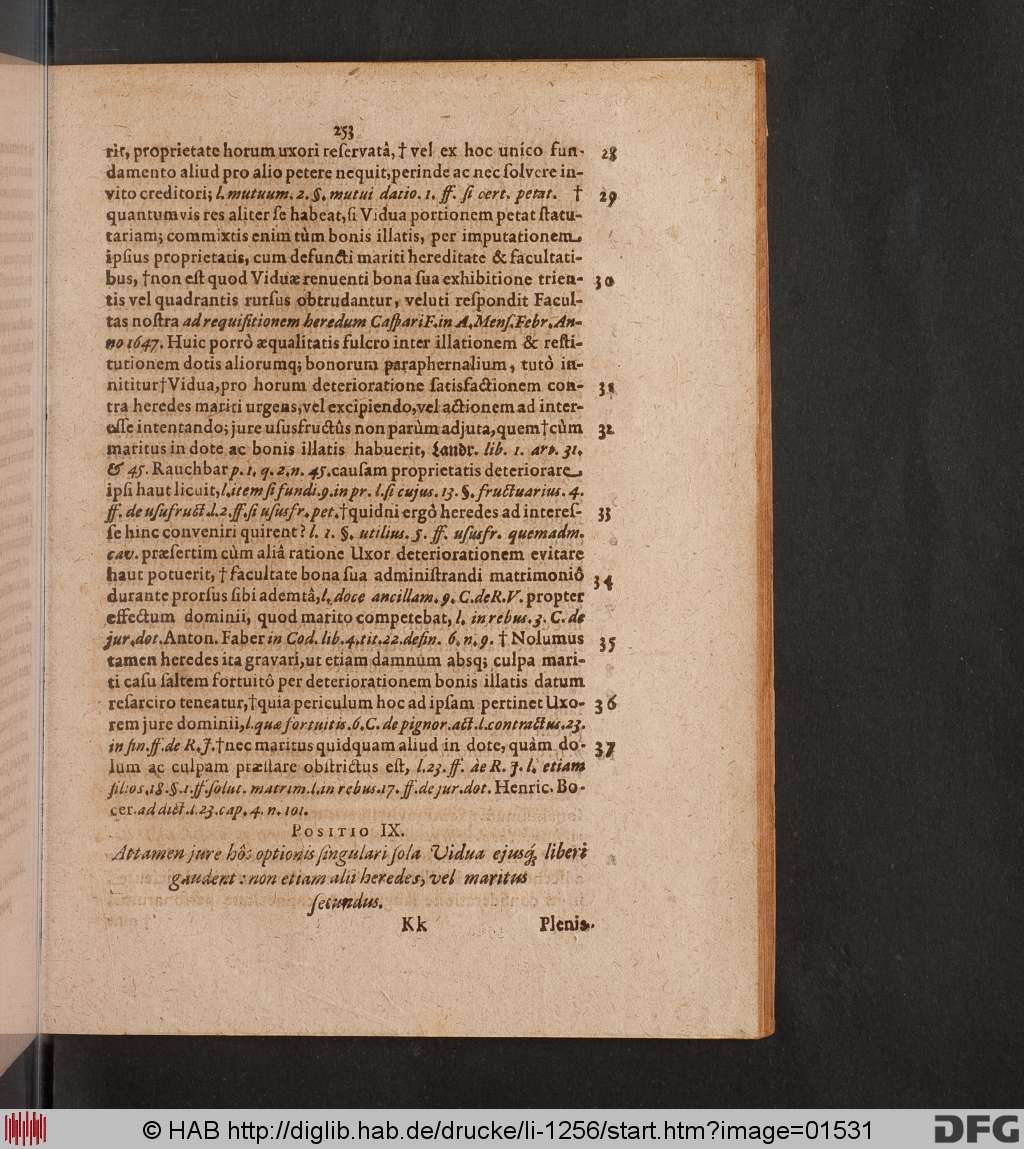 253
rit, proprietate horum uxori reſervatâ, † vel ex hoc unico fun- 28
damento aliud pro alio petere nequit, perinde ac nec ſolvere in-
vito creditori; l. mutuum. 2. §. mutui datio. 1. ff. ſi cert. petat. † 29
quantumvis res aliter ſe habeat, ſi Vidua portionem petat ſtatu-
tariam; commixtis enim tùm bonis illatis, per imputationem
ipſius proprietatis, cum defuncti mariti hereditate & facultati-
bus, † non eſt quod Viduæ renuenti bona ſua exhibitione trien- 30
tis vel quadrantis rurſus obtrudantur, veluti reſpondit Facul-
tas noſtra ad requiſitionem heredum Caſpari F. in A. Menſ. Febr. An-
no 1647. Huic porrò æqualitatis fulcro inter illationem & reſti-
tutionem dotis aliorumq; bonorum paraphernalium, tutò in-
nititur † Vidua, pro horum deterioratione ſatisfactionem con- 31
tra heredes mariti urgens, vel excipiendo, vel actionem ad inter-
eſſe intentando; jure uſusfructûs non parùm adjuta, quem † cùm 32
maritus in dote ac bonis illatis habuerit, Landr. lib. 1. art. 31.
& 45. Rauchbar p. 1. q. 2. n. 45. cauſam proprietatis deteriorare
ipſi haut licuit, l. item ſi fundi. 9. in pr. l. ſi cujus. 13. §. fructuarius. 4.
ff. de uſufruct. l. 2. ff. ſi uſusfr. pet. † quidni ergò heredes ad intereſ- 33
ſe hinc conveniri quirent? l. 1. §. utilius. 5. ff. uſusfr. quemadm.
cav. præſertim cùm aliâ ratione Uxor deteriorationem evitare
haut potuerit, † facultate bona ſua adminiſtrandi matrimoniô 34
durante prorſus ſibi ademtâ, l. doce ancillam. 9. C. de R. V. propter
effectum dominii, quod marito competebat, l. in rebus. 3. C. de
jur. dot. Anton. Faber in Cod. lib. 4. tit. 22. defin. 6. n. 9. † Nolumus 35
tamen heredes ita gravari, ut etiam damnum absq; culpa mari-
ti caſu ſaltem fortuitô per deteriorationem bonis illatis datum
reſarciro teneatur, † quia periculum hoc ad ipſam pertinet Uxo- 36
rem jure dominii, l. quæ fortuitis. 6. C. de pignor. act. l. contractus. 23.
in fin. ff. de R. J. † nec maritus quidquam aliud in dote, quàm do- 37
lum ac culpam præſtare obſtrictus eſt, l. 23. ff. de R. J. l. etiam
filios. 18. §. 1. ff. ſolut. matrim. l. in rebus. 17. ff. de jur. dot. Henric. Bo-
cer. ad dict. l. 23. cap. 4. n. 101.
POSITIO IX.
Attamen jure hôc optionis ſingulari ſola Vidua ejusq́; liberi
gaudent: non etiam alii heredes, vel maritus
ſecundus.
Kk Plenis-
© HAB http://diglib.hab.de/drucke/li-1256/start.htm?image=01531
DFG